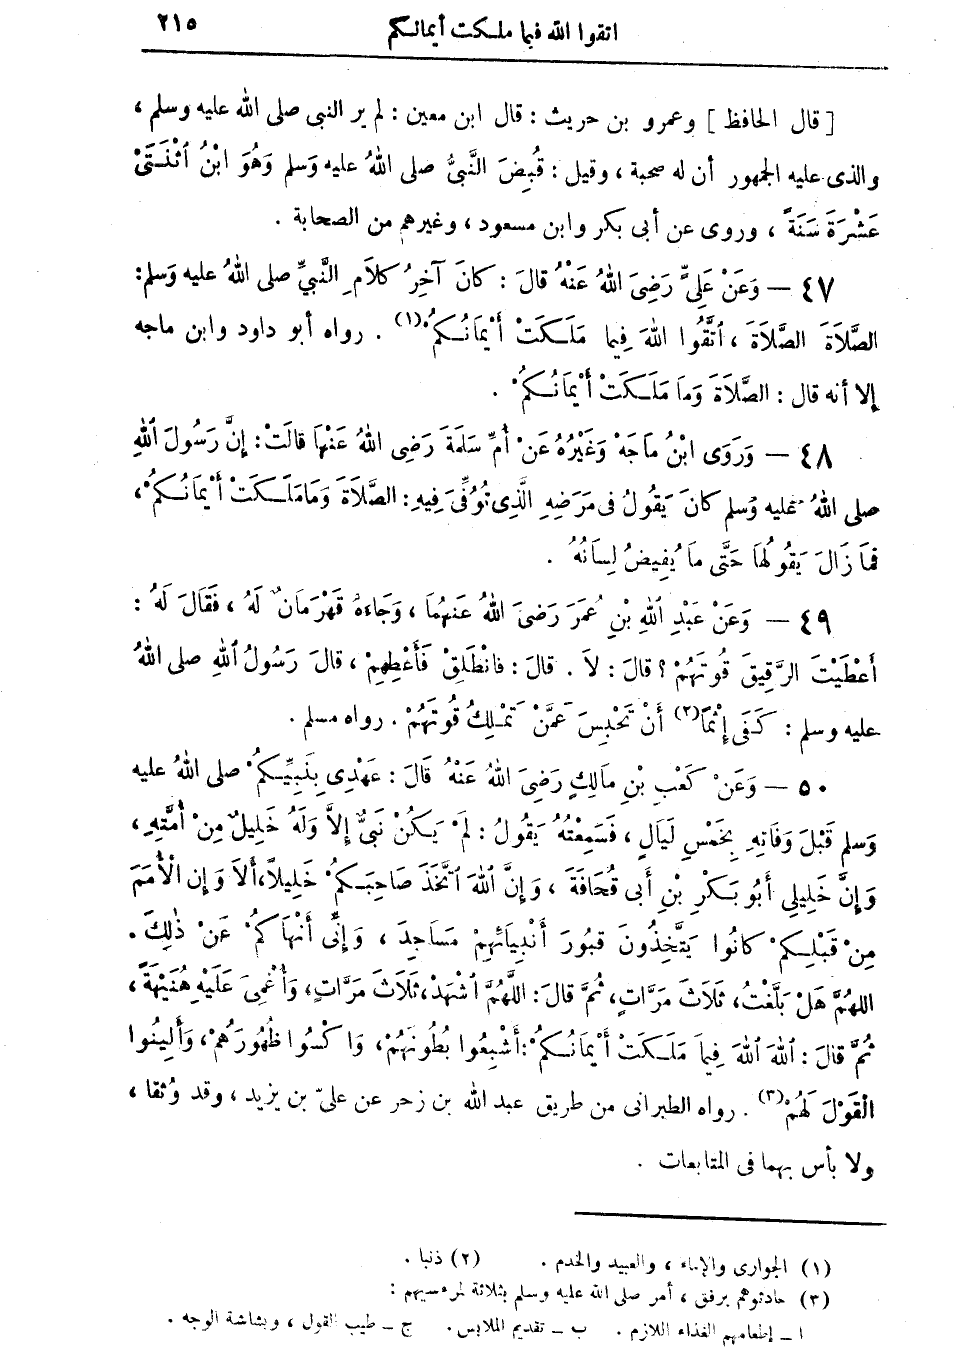 اتقوا الله فيما ملكت أيمانكم ٢١٥
[ قال الحافظ ] وعمرو بن حريث : قال ابن معين : لم ير النبى صلى الله عليه وسلم ،
والذى عليه الجمهور أن له صحبة ، وقيل : قُبِضَ النَّبِىُّ صلى اللهُ عليه وَسلم وَهُوَ ابْنُ اثْنَتَىْ
عَشْرَةَ سَنَةً ، وروى عن أبى بكر وابن مسعود ، وغيرهم من الصحابة .
٤٧ — وَعَنْ عَلِىٍّ رَضِىَ اللهُ عَنْهُ قالَ : كانَ آخِرُ كَلاَمِ النَّبِىِّ صلى اللهُ عليه وَسلم :
الصَّلاَةَ الصَّلاَةَ ، اُتَّقُوا اللهَ فِيما مَلَكَتْ أَيْمَانُكُمْ(١) . رواه أبو داود وابن ماجه
إلا أنه قال : الصَّلاَةَ وَمَا مَلَكَتْ أَيْمَانُكُمْ .
٤٨ — وَرَوَى ابْنُ مَاجَهْ وَغَيْرُهُ عَنْ أُمِّ سَلَمَةَ رَضِى اللهُ عَنْهَا قالَتْ : إِنَّ رَسُولَ اللهِ
صلى اللهُ عليه وَسلم كانَ يَقُولُ فى مَرَضِهِ الَّذِى تُوُفِّىَ فِيهِ : الصَّلاَةَ وَمَا مَلَكَتْ أَيْمَانُكُمْ ،
فَمَا زَالَ يَقُولُهَا حَتَّى مَا يُفِيضُ لِسَانُهُ .
٤٩ — وَعَنْ عَبْدِ اللهِ بْنِ عُمَرَ رَضىَ اللهُ عَنْهُمَا ، وَجَاءَهُ قَهْرَمَانٌ لَهُ ، فَقَالَ لَهُ :
أَعْطَيْتَ الرَّقِيقَ قُوتَهُمْ ؟ قالَ : لاَ . قالَ : فانْطَلِقْ فَأَعْطِهِمْ ، قالَ رَسُولُ اللهِ صلى اللهُ
عليه وسلم : كَفَى إِثْمًا(٢) أَنْ تَحْبِسَ عَمَّنْ تَمْلِكُ قُوتَهُمْ . رواه مسلم .
٥٠ — وَعَنْ كَعْبِ بْنِ مَالِكٍ رَضِىَ اللهُ عَنْهُ قَالَ : عَهْدِى بِنَبِيِّكُمْ صلى اللهُ عليه
وَسلم قَبْلَ وَفَاتِهِ بِخَمْسِ لَيَالٍ ، فَسَمِعْتُهُ يَقُولُ : لَمْ يَكُنْ نَبِىٌّ إِلاَّ وَلَهُ خَلِيلٌ مِنْ أُمَّتِهِ ،
وَإِنَّ خَلِيلِى أَبُو بَكْرِ بْنِ أَبِى قُحَافَةَ ، وَإِنَّ اللهَ اتَّخَذَ صَاحِبَكُمْ خَلِيلاً ، أَلاَ وَإِن الْأُمَمَ
مِنْ قَبْلِكُمْ كانُوا يَتَّخِذُونَ قبُورَ أَنْبِيَائِهِمْ مَسَاجِدَ ، وَإِنِّى أَنْهَاكُمْ عَنْ ذٰلِكَ .
اللهُمَّ هَلْ بَلَّغْتُ ، ثَلاَثَ مَرَّاتٍ ، ثُمَّ قالَ : اللَّهُمَّ اشْهَدْ ، ثَلاَثَ مَرَّاتٍ ، وَأُغْمِىَ عَلَيْهِ هُنَيْهَةً ،
ثُمَّ قالَ : اللهَ اللهَ فِيمَا مَلَكَتْ أَيْمَانُكُمْ : أَشْبِعُوا بُطُونَهُمْ ، وَاكْسُوا ظُهُورَهُمْ ، وَأَلِينُوا
الْقَوْلَ لَهُمْ(٣) . رواه الطبرانى من طريق عبد الله بن زحر عن علىّ بن يزيد ، وقد وُثقا ،
ولا بأس بهما فى المتابعات .
(١) الجوارى والإماء ، والعبيد والخدم . (٢) ذنبا .
(٣) حادثوهم برفق ، أمر صلى الله عليه وسلم بثلاثة لمرءوسيهم :
ا ــ إطعامهم الغذاء اللازم . ب ــ تقديم الملابس . ج ــ طيب القول ، وبشاشة الوجه .